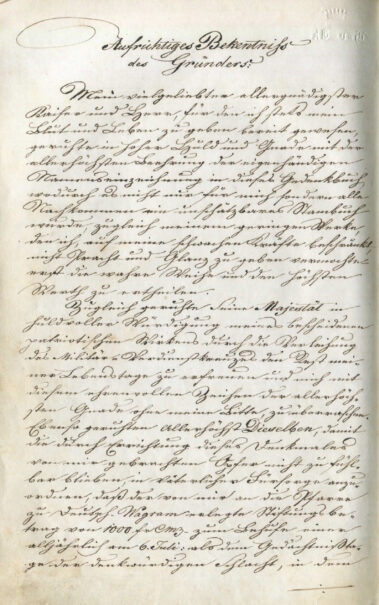 Aufrichtiges Bekentniss
des Gründers:
Mein vielgeliebter allergnädigster
Kaiser und Herr, für den ich stets mein
Blut und Leben zu geben bereit gewesen,
geruhte in hoher Huld und Gnade mit der
allerhöchsten Beehrung der eigenhändigen
Namenseinzeichnung in dieses Gedenkbuch,
wodurch es nicht nur für mich sondern alle
Nachkommen ein unschätzbares
wurde, zugleich meinem geringen Werke,
den ich, auf meine schwachen Kräfte beschränkt,
nicht Pracht und Glanz zu geben vermochte
erst die wahre Weihe und den höchsten
Werth zu ertheilen.
Zugleich geruhte Seine Majestät in
huldvoller Würdigung meines bescheidenen
patriotischen Wirkens durch die Verleihung
des Militär-Verdienstkreuzes den Rest mei-
ner Lebenstage zu erfreuen und mich mit
diesem ehrenvollen Zeichen der allerhöch-
sten Gnade ohne meine Bitte, zu überraschen.
Ebenso geruhten Allerhöchst Dieselben, damit
die durch Errichtung dieses Denkmales
von mir gebrachten Opfer nicht zu fühl-
bar blieben, in väterlicher Fürsorge anzu-
ordnen, daß der von mir an die Pfarre
zu Deutsch-Wagram erlegte Stiftungs be-
trag von 1000 fr CMz. zum Behufe einer
alljährlich am 6. Juli: als dem Gedächtnißta-
ge der denkwürdigen Schlacht, in dem